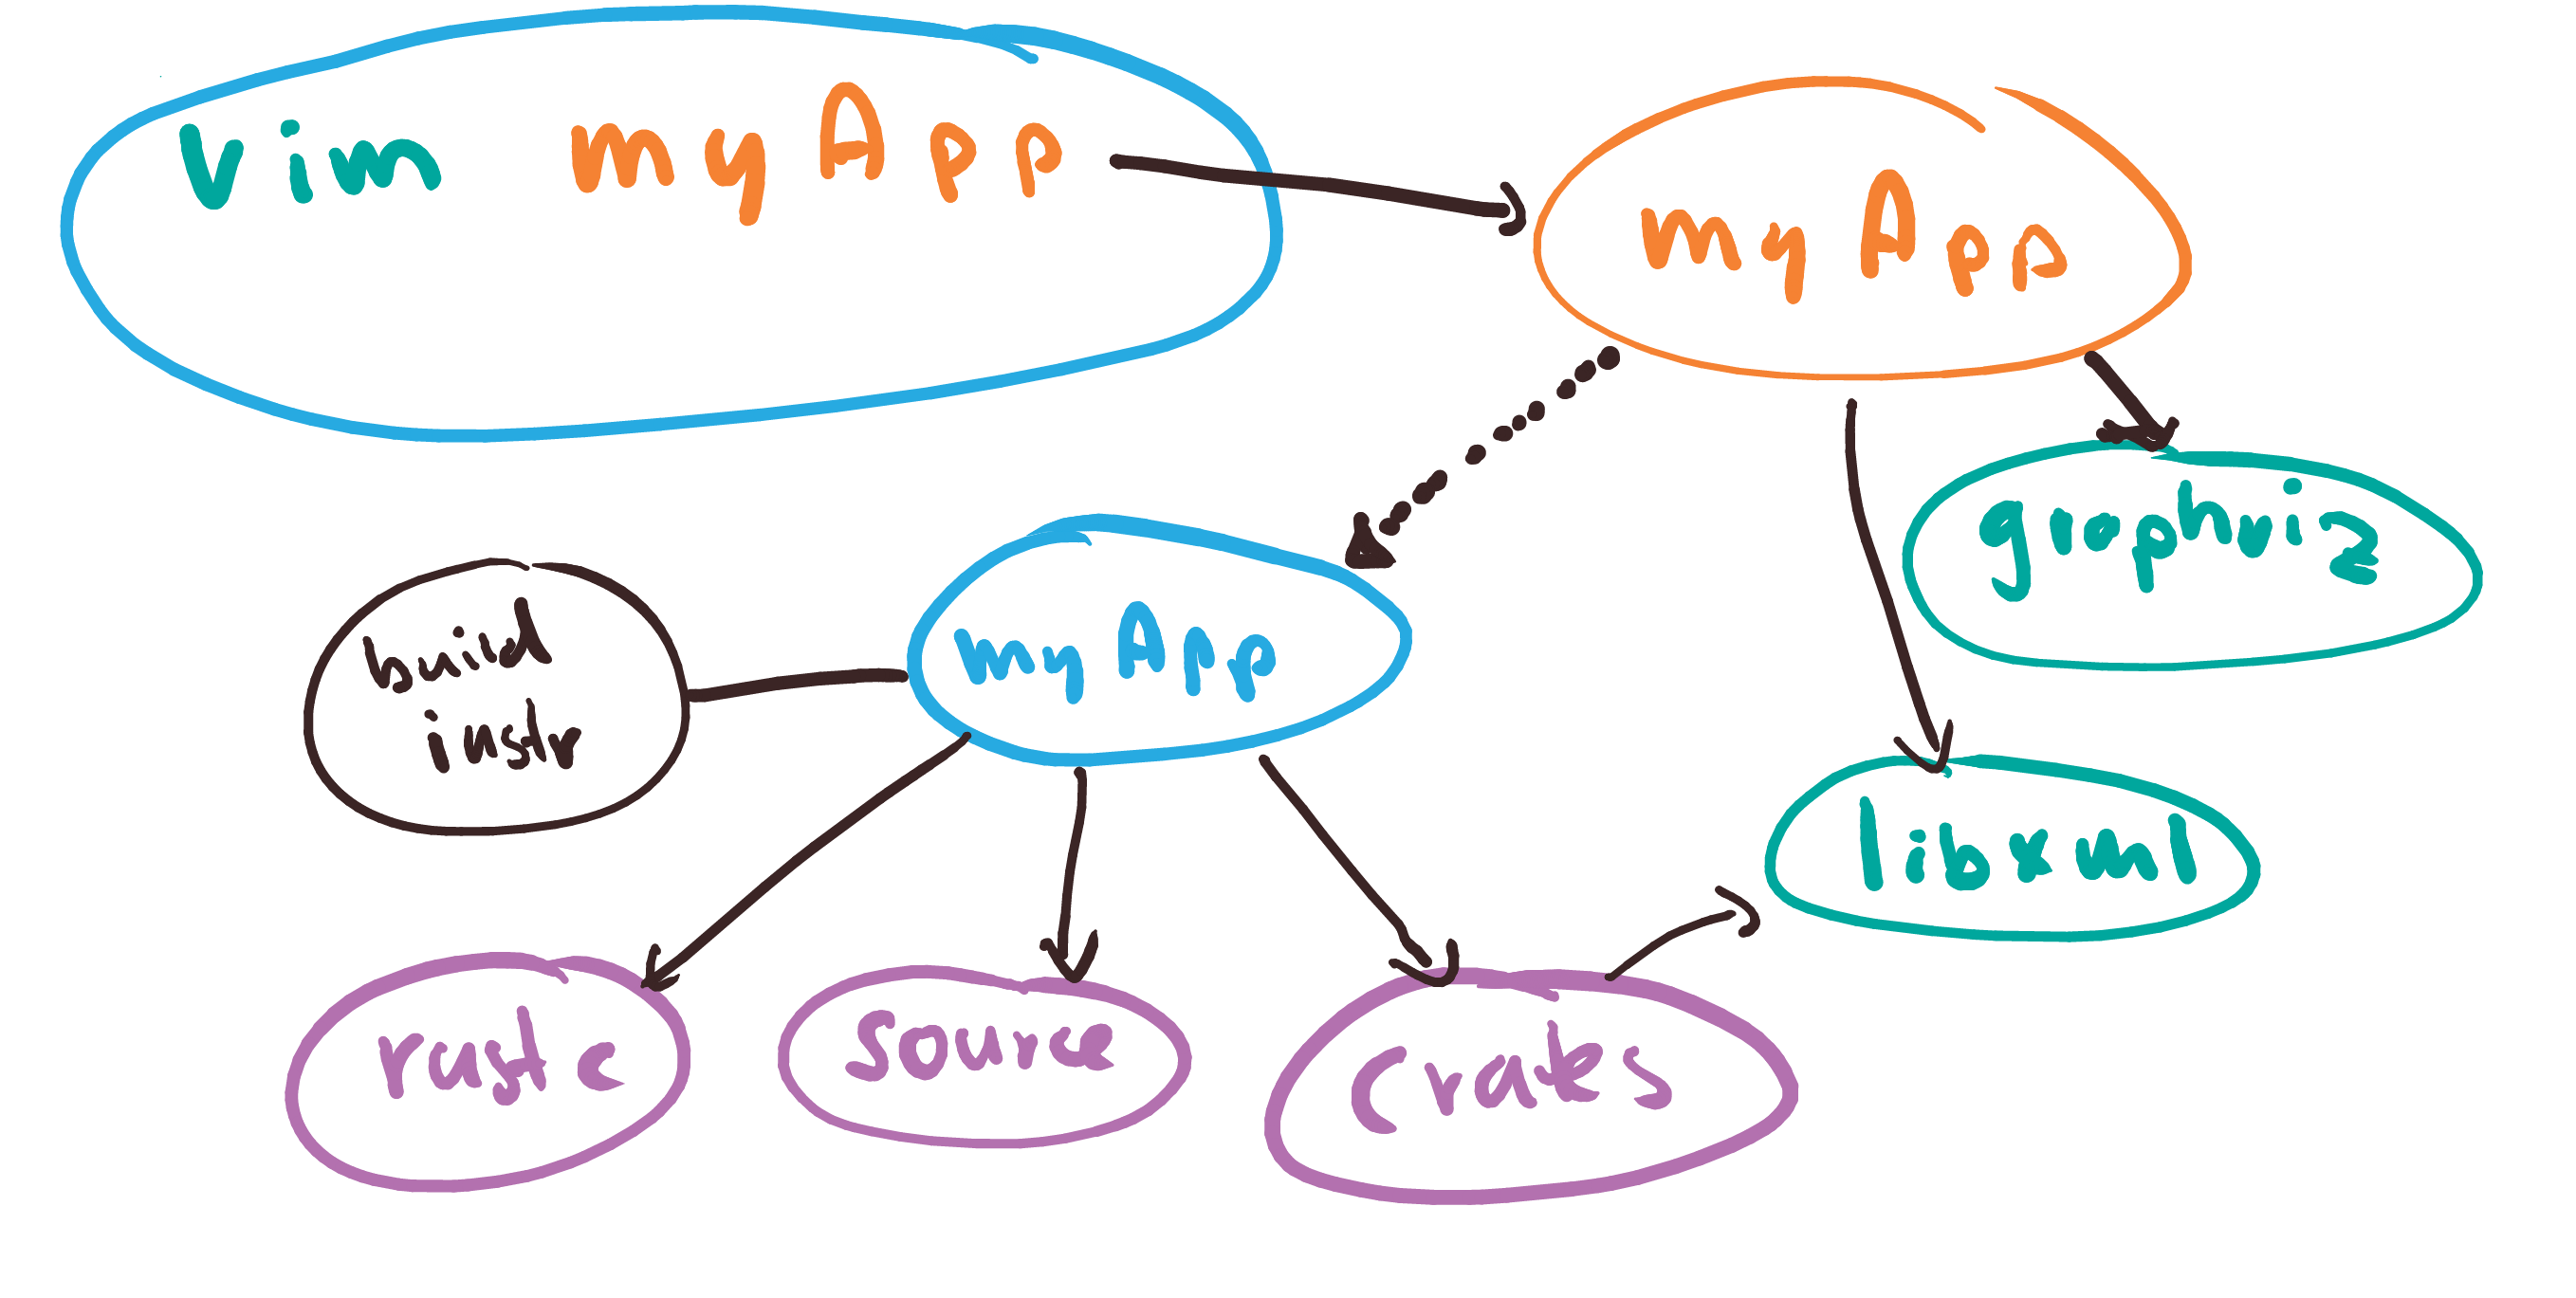 vim myApp
myApp
graphviz
build
instr
myApp
libxml
rustc
source
crates